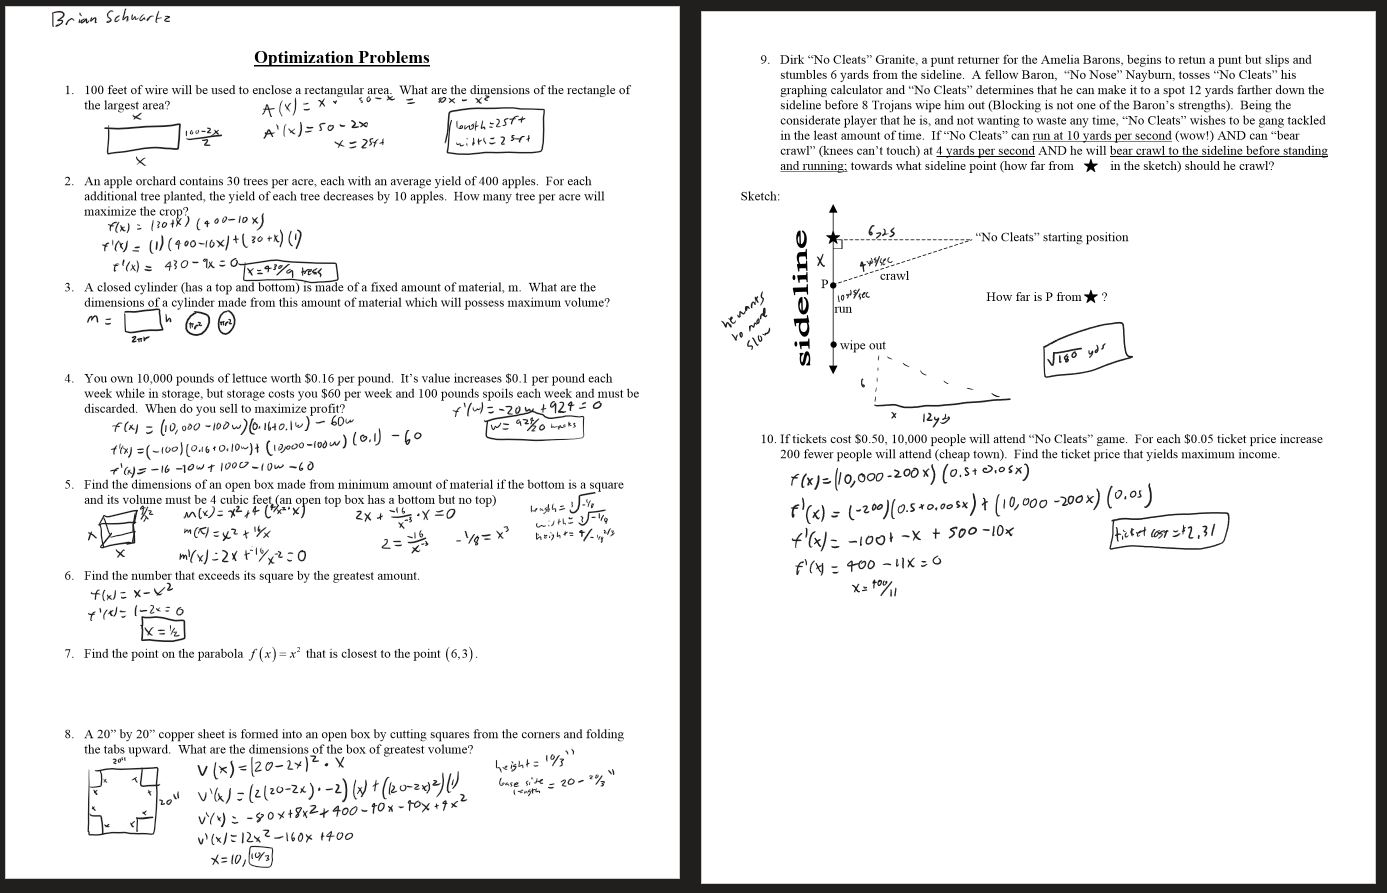 Brian Schwartz
Optimization Problems
1. 100 feet of wire will be used to enclose a rectangular area. What are the dimensions of the rectangle of
the largest area?
A(x) = x · 50-x = 50x - x²
x
100-2x/2
x
A'(x) = 50 - 2x
x = 25ft
length = 25ft
width = 25ft
2. An apple orchard contains 30 trees per acre, each with an average yield of 400 apples. For each
additional tree planted, the yield of each tree decreases by 10 apples. How many tree per acre will
maximize the crop?
f(x) = (30+x)(400-10x)
f'(x) = (1)(400-10x)+(30+x)(1)
f'(x) = 430-9x = 0
x = 430/9 trees
3. A closed cylinder (has a top and bottom) is made of a fixed amount of material, m. What are the
dimensions of a cylinder made from this amount of material which will possess maximum volume?
m =
h
πr²
πr²
2πr
4. You own 10,000 pounds of lettuce worth $0.16 per pound. It's value increases $0.1 per pound each
week while in storage, but storage costs you $60 per week and 100 pounds spoils each week and must be
discarded. When do you sell to maximize profit?
f(x) = (10,000-100w)(0.16+0.1w) - 60w
f'(x) = (-100)(0.16+0.10w)+(10,000-100w)(0.1) - 60
f'(x) = -16 -10w + 1000 -10w -60
f'(w) = -20w + 924 = 0
w = 924/20 weeks
5. Find the dimensions of an open box made from minimum amount of material if the bottom is a square
and its volume must be 4 cubic feet (an open top box has a bottom but no top)
x
x
m(x) = x² + 4(4/x² · x)
m(x) = x² + 16/x
m'(x) = 2x + -16/x-2 = 0
2x + -16/x-3 · x = 0
2 = -16/x-3
-1/8 = x³
length = 3√-1/8
width = 3√-1/8
6. Find the number that exceeds its square by the greatest amount.
f(x) = x - x²
f'(x) = 1 - 2x = 0
x = 1/2
7. Find the point on the parabola f(x) = x² that is closest to the point (6,3).
8. A 20” by 20” copper sheet is formed into an open box by cutting squares from the corners and folding
the tabs upward. What are the dimensions of the box of greatest volume?
20"
20"
V(x) = (20-2x)² · x
V'(x) = (2(20-2x)·-2)(x)+((20-2x)²)(1)
V'(x) = -80x+8x²+400-40x-40x+4x²
V'(x) = 12x²-160x+400
x = 10, 10/3
height = 10/3"
base side length = 20 - 20/3"
9. Dirk “No Cleats” Granite, a punt returner for the Amelia Barons, begins to retun a punt but slips and
stumbles 6 yards from the sideline. A fellow Baron, “No Nose” Nayburn, tosses “No Cleats” his
graphing calculator and “No Cleats” determines that he can make it to a spot 12 yards farther down the
sideline before 8 Trojans wipe him out (Blocking is not one of the Baron’s strengths). Being the
considerate player that he is, and not wanting to waste any time, “No Cleats” wishes to be gang tackled
in the least amount of time. If “No Cleats” can run at 10 yards per second (wow!) AND can “bear
crawl” (knees can’t touch) at 4 yards per second AND he will bear crawl to the sideline before standing
and running; towards what sideline point (how far from ★ in the sketch) should he crawl?
Sketch:
sideline
“No Cleats” starting position
x
crawl
P
How far is P from ★ ?
run
he wants to move slow
wipe out
√180 yds
6
x
12yds
10. If tickets cost $0.50, 10,000 people will attend “No Cleats” game. For each $0.05 ticket price increase
200 fewer people will attend (cheap town). Find the ticket price that yields maximum income.
f(x) = (10,000-200x)(0.5+0.05x)
f'(x) = (-200)(0.5+0.005x)+(10,000-200x)(0.05)
f'(x) = -100+ -x + 500 -10x
f'(x) = 400 - 11x = 0
x = 400/11
ticket cost = $2.31